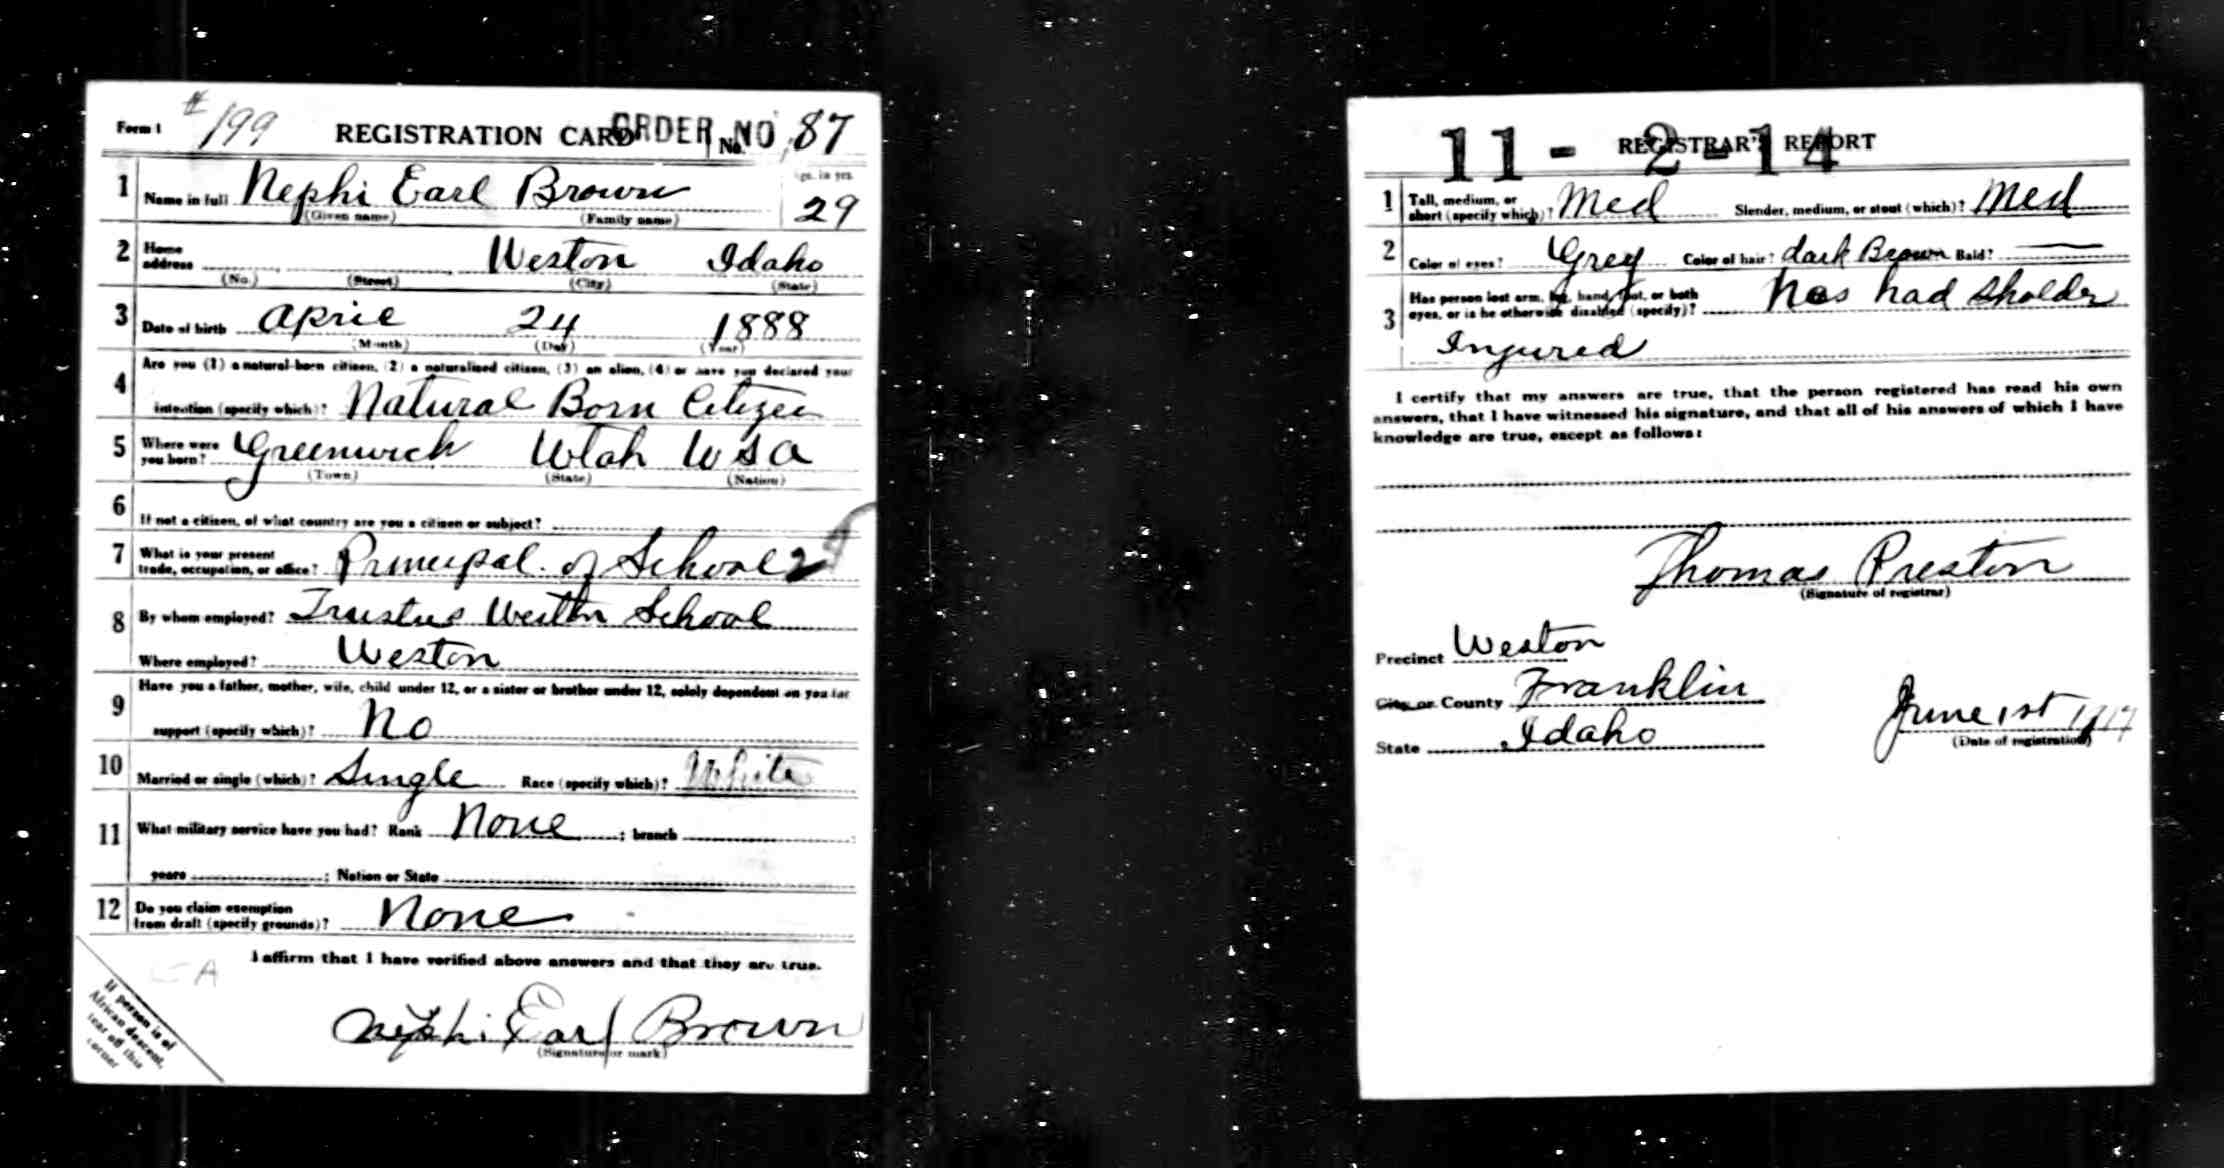 Form 1 # 199 REGISTRATION CARD ORDER NO. No. 87
1 Name in full Nephi Earl Brown Age, in yrs. 29
(Given name) (Family name)
2 Home address Weston Idaho
(No.) (Street) (City) (State)
3 Date of birth April 24 1888
(Month) (Day) (Year)
4 Are you (1) a natural-born citizen, (2) a naturalized citizen, (3) an alien, (4) or have you declared your
intention (specify which)? Natural Born Citizen
5 Where were you born? Greenwich Utah USA
(Town) (State) (Nation)
6 If not a citizen, of what country are you a citizen or subject?
7 What is your present trade, occupation, or office? Principal of School 2
8 By whom employed? Trustus Weston School
Where employed? Weston
9 Have you a father, mother, wife, child under 12, or a sister or brother under 12, solely dependent on you for
support (specify which)? No
10 Married or single (which)? Single Race (specify which)? White
11 What military service have you had? Rank None ; branch ;
years ; Nation or State
12 Do you claim exemption from draft (specify grounds)? None
I affirm that I have verified above answers and that they are true.
Nephi Earl Brown
(Signature or mark)
If person is of
African descent,
tear off this
corner
11-2-14 REGISTRAR'S REPORT
1 Tall, medium, or short (specify which)? Med Slender, medium, or stout (which)? Med
2 Color of eyes? Grey Color of hair? dark Brown Bald? —
3 Has person lost arm, leg, hand, foot, or both eyes, or is he otherwise disabled (specify)? Has had sholder
Injured
I certify that my answers are true, that the person registered has read his own
answers, that I have witnessed his signature, and that all of his answers of which I have
knowledge are true, except as follows:
Thomas Preston
(Signature of registrar)
Precinct Weston
City or County Franklin
State Idaho
June 1st 1917
(Date of registration)